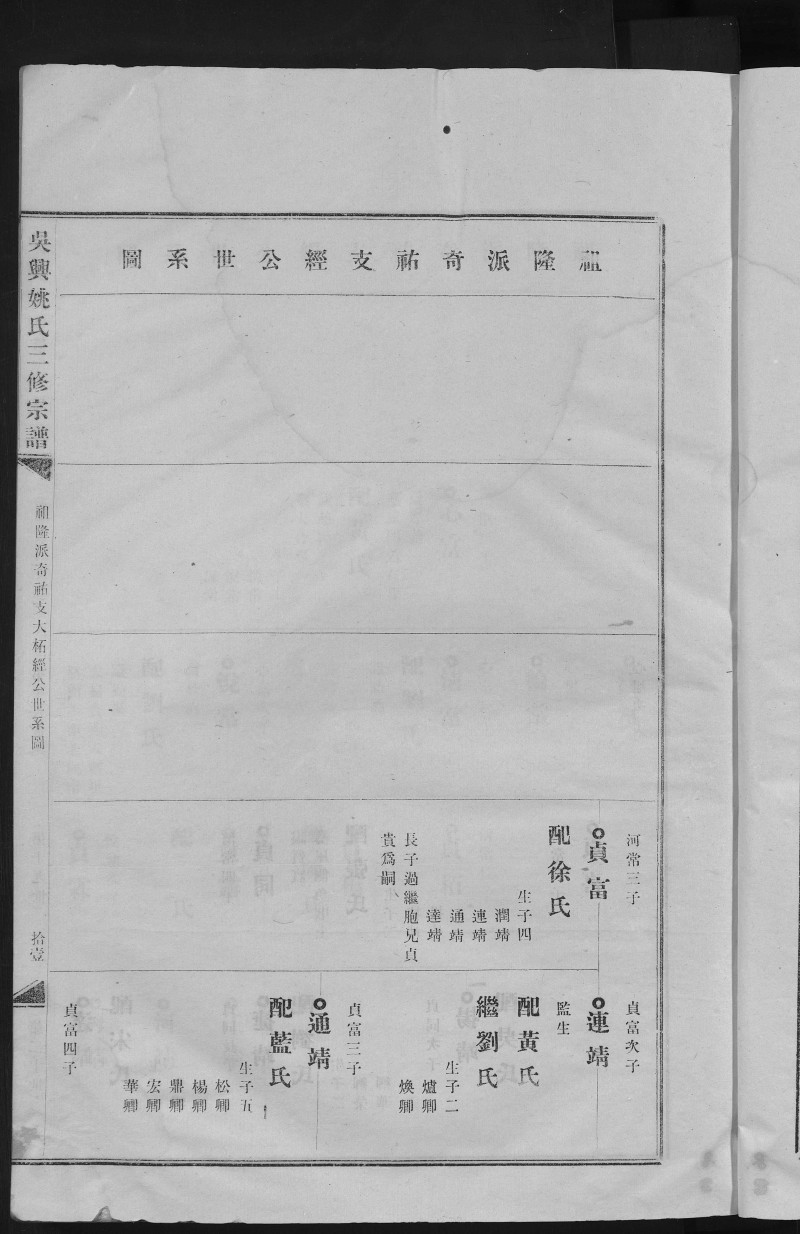 祖隆派奇祐支經公世系圖
河常三子
貞富
配徐氏
生子四
潤靖
連靖
通靖
達靖
長子過繼胞兄貞
貴爲嗣
貞富次子
連靖
監生
配黃氏
繼劉氏
生子二
爐卿
煥卿
貞富三子
通靖
配藍氏
生子五
松卿
楊卿
鼎卿
宏卿
華卿
貞富四子
吳興姚氏三修宗譜
祖隆派奇祐支大柘經公世系圖
拾壹